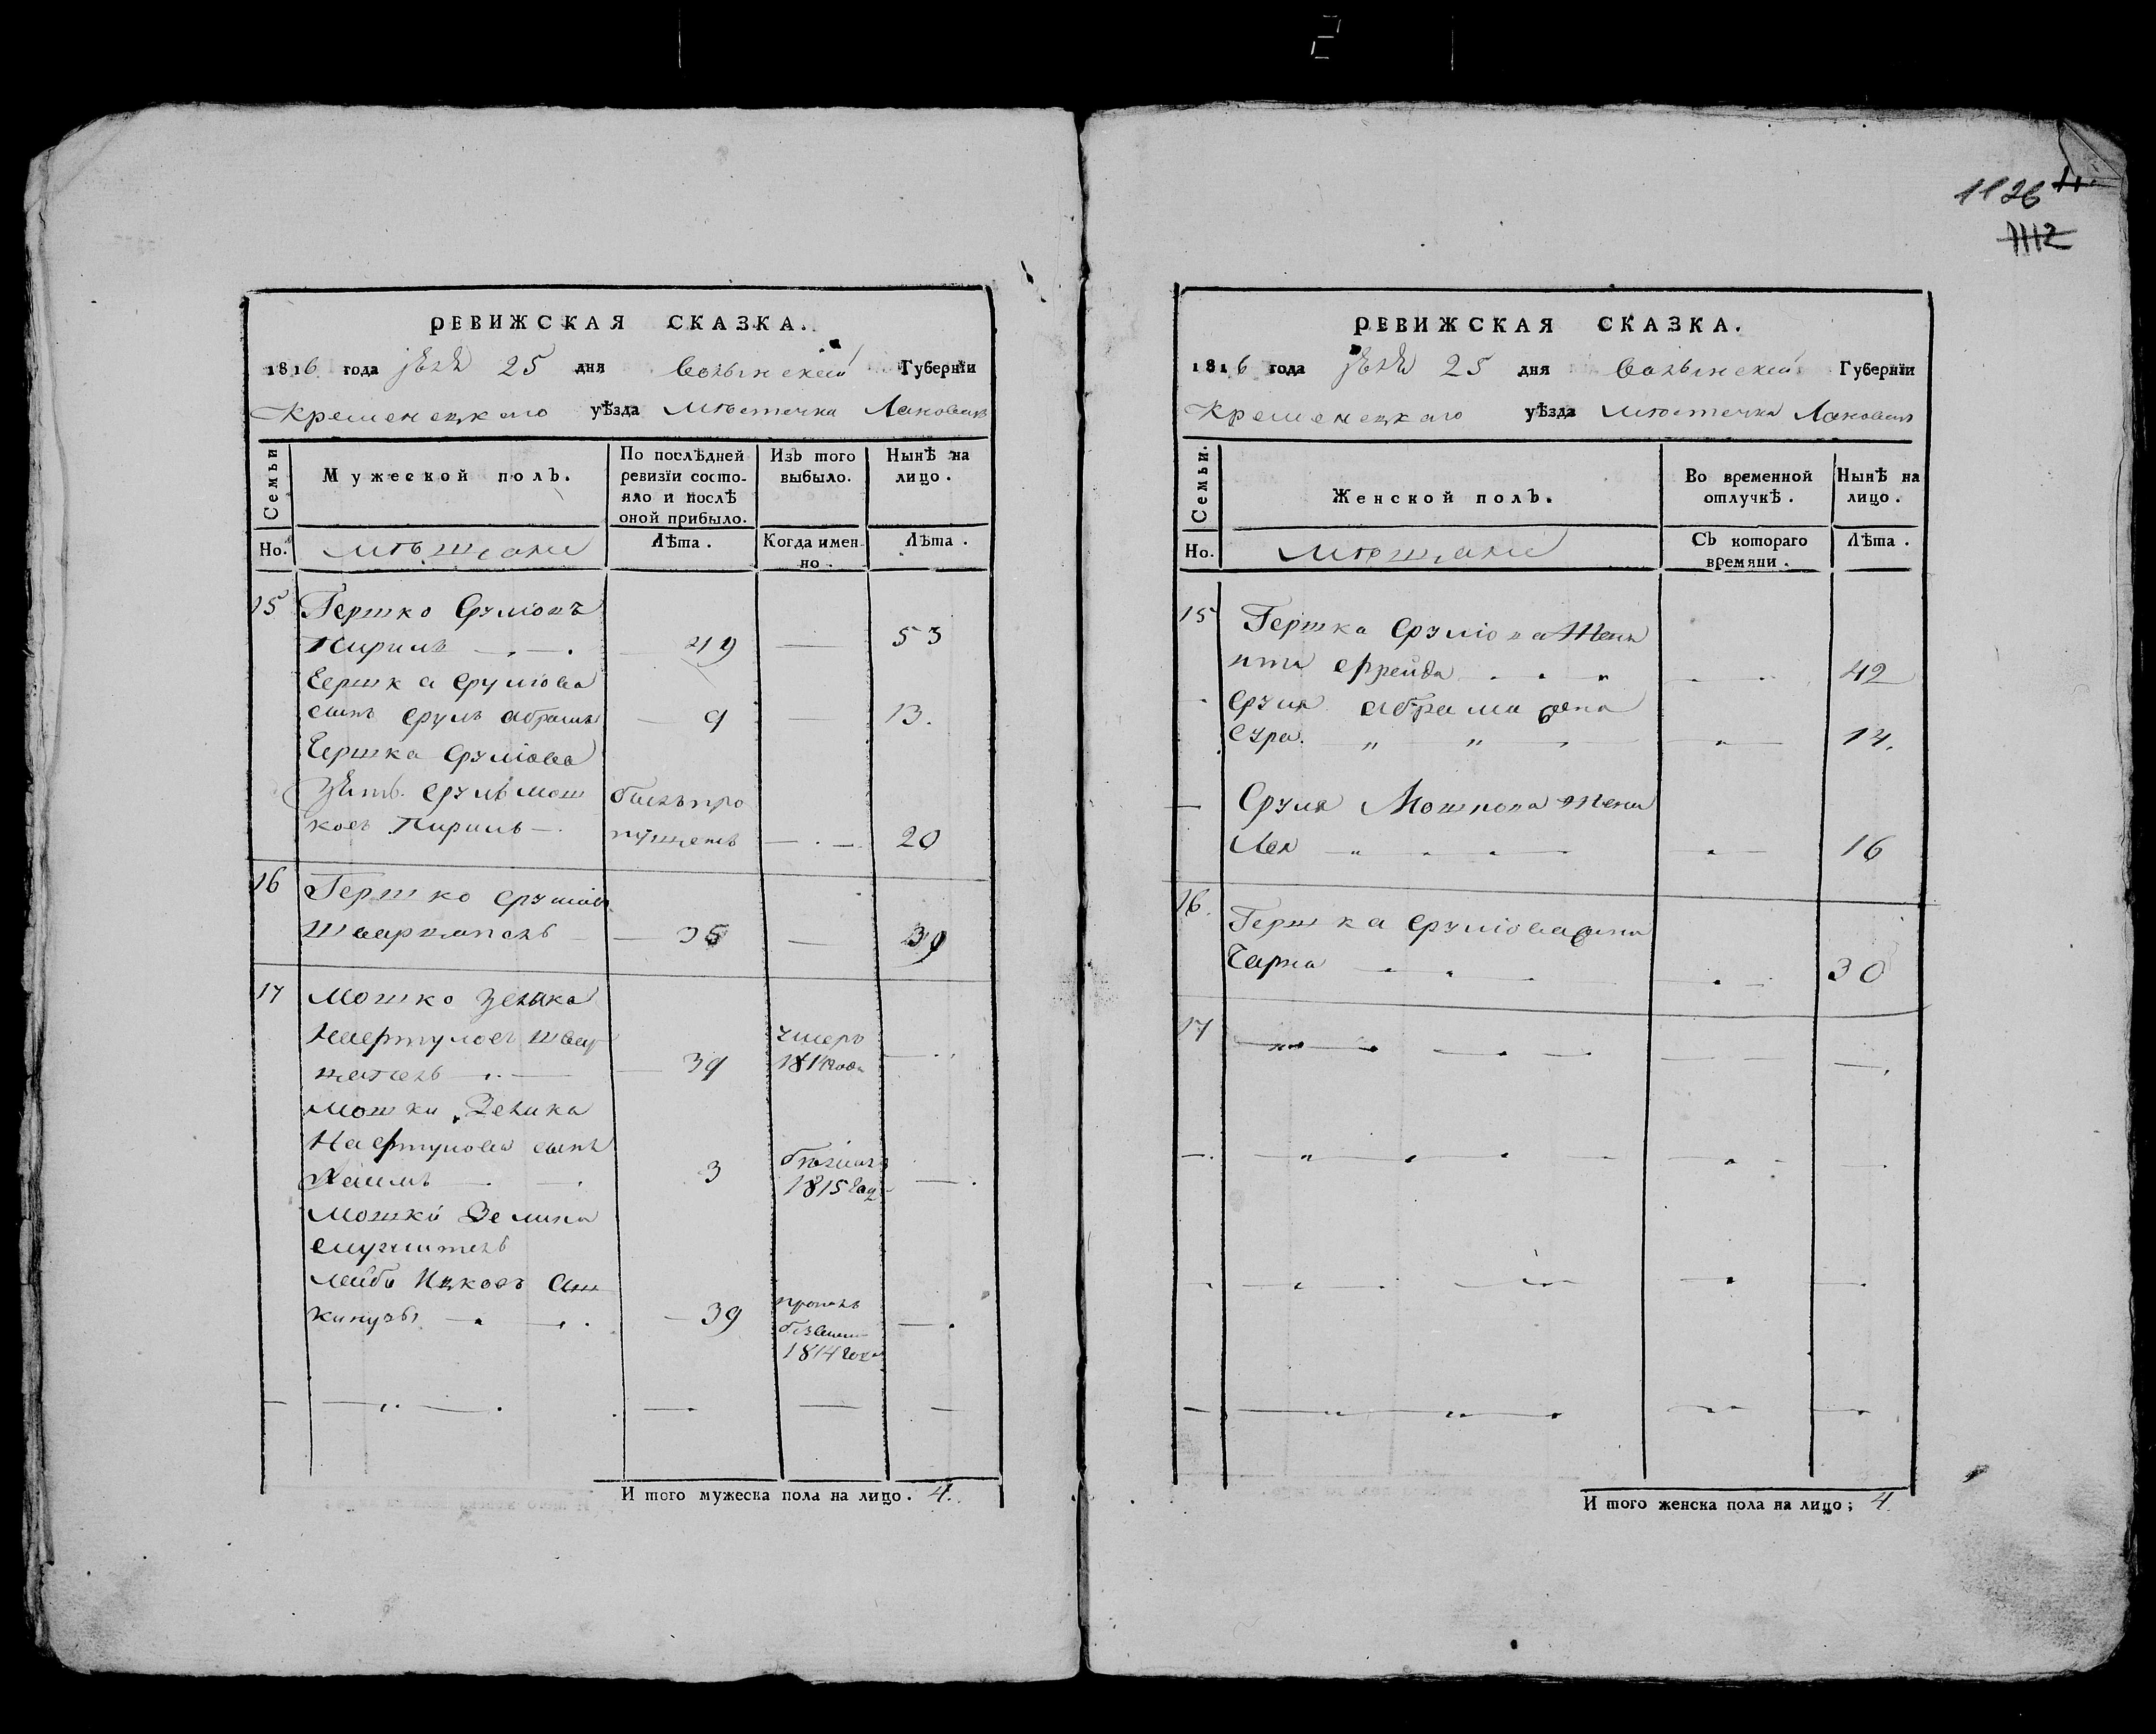 1126
1112
РЕВИЖСКАЯ СКАЗКА.
1816 года 25 дня Волынской Губернїи
Кременецкаго уѣзда Мѣстечка Лановець
Семьи
Мужеской полъ.
По послѣдней ревизїи состо-
яло и послѣ
оной прибыло.
Изъ того выбыло.
Нынѣ на лицо.
Но.
мѣщане
Лѣта.
Когда имен-
но.
Лѣта.
15 Гершко Срулiовъ
Кириль 49 — 53
Гершка Срулiова
сынъ Сруль Абрамъ — 9 — 13.
Гершка Срулiова
зять Сруль Мош
ковъ Кириль былъ про
пущенъ — 20
16 Гершко Срулiовъ
— 35 — 39
17 Мошко Зелика
Нафтуловъ
— 39 умеръ
1814 года
Мошки Зелика
Нафтулова сынъ
Хаимъ 3
1815 году
Мошки Зелика
служитель
Лейба Ицковъ
— 39 пропалъ
без вести
1814 года
И того мужеска пола на лицо. 4.
РЕВИЖСКАЯ СКАЗКА.
1816 года 25 дня Волынской Губернїи
Кременецкаго уѣзда мѣстечка Лановець
Семьи.
Женской полъ.
Во временной
отлучкѣ.
Нынѣ на
лицо.
Но.
мѣщане
Съ котораго
времяни.
Лѣта.
15 Гершка Срулiова Жена
Фрейда 42
Сруля Абрама жена
Сура 14.
Сруля Мошкова жена
Лея 16
16. Гершка Срулiова жена
Чарна 30
17
И того женска пола на лицо; 4